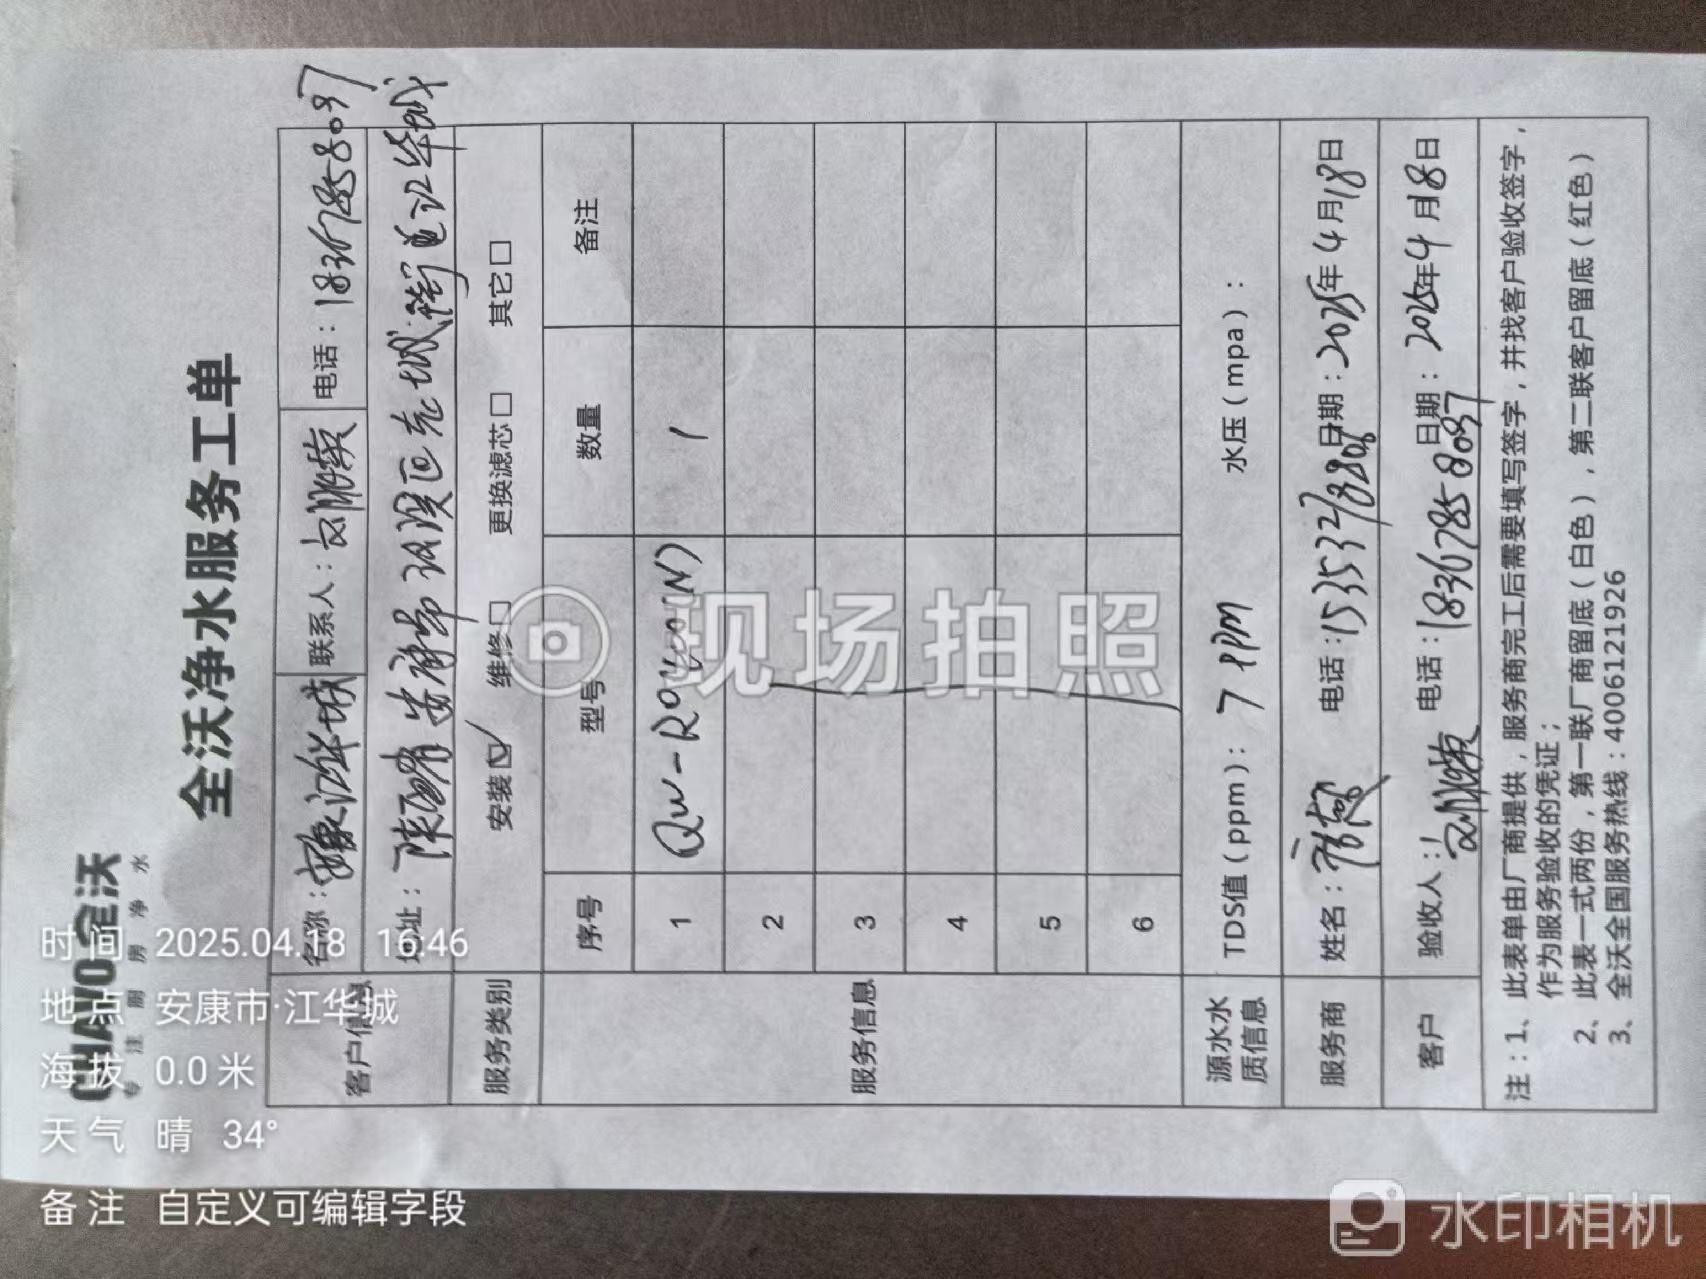 CHANO全沃
专注厨房净水
全沃净水服务工单
客户信息
名称：安康江华城 联系人： 电话：18367858097
地址：陕西省安康市汉滨区 江华城
服务类别 安装☑ 维修□ 更换滤芯□ 其它□
服务信息
序号 型号 数量 备注
1 1
2
3
4
5
6
源水水质信息 TDS值（ppm）：7 PPM 水压（mpa）：
服务商 姓名： 电话： 日期：2025年4月18日
客户 验收人： 电话：18367858097 日期：2025年4月8日
注：1、此表单由厂商提供，服务商完工后需要填写签字，并找客户验收签字，
作为服务验收的凭证；
2、此表一式两份，第一联厂商留底（白色），第二联客户留底（红色）
3、全沃全国服务热线：4006121926
现场拍照
时间 2025.04.18 16:46
地点 安康市·江华城
海拔 0.0米
天气 晴 34°
备注 自定义可编辑字段
水印相机